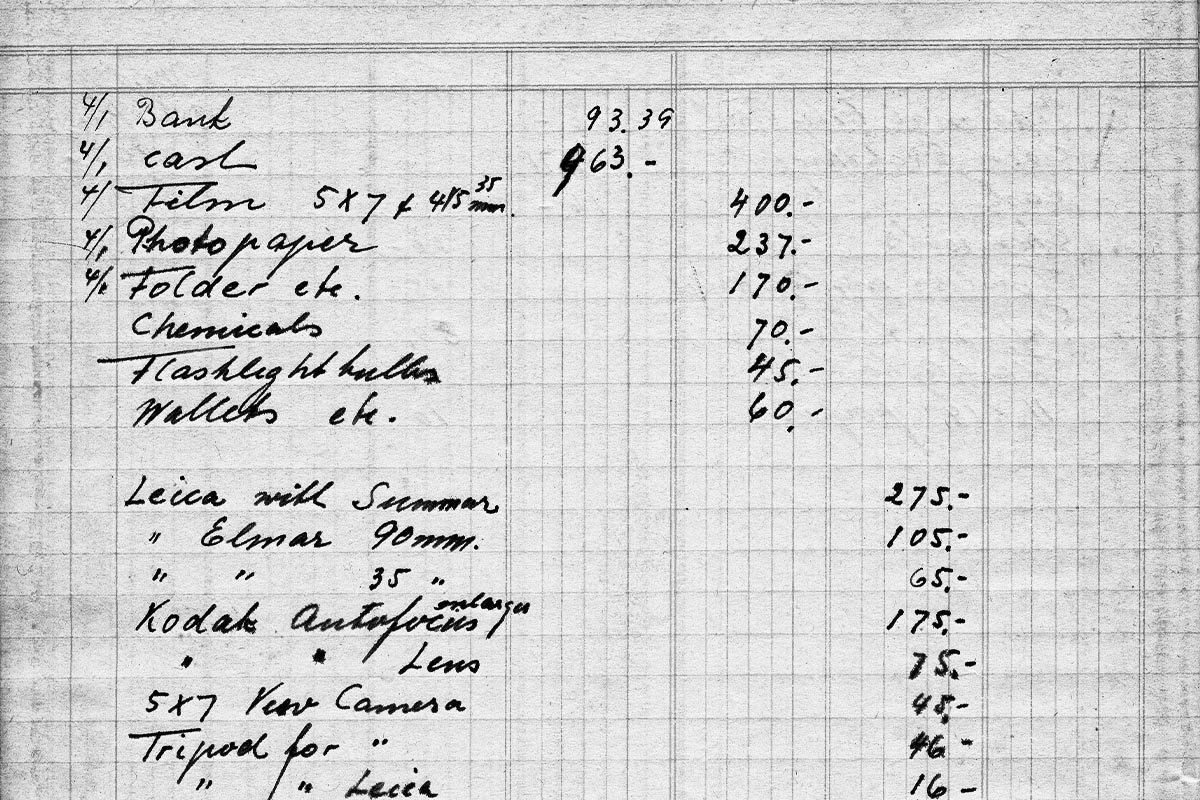 4/1 Bank 93.39
4/1 cash 963.-
4/1 Film 5X7 & 4X5 35 mm. 400.-
4/1 Photopaper 237.-
4/1 Folder etc. 170.-
Chemicals 70.-
Flashlight bulbs 45.-
Wallets etc. 60.-
Leica with Summar 275.-
" Elmar 90mm. 105.-
" " 35 " 65.-
Kodak Autofocus enlarger 175.-
" " Lens 75.-
5X7 View Camera 45.-
Tripod for " -
" " Leica 16 -